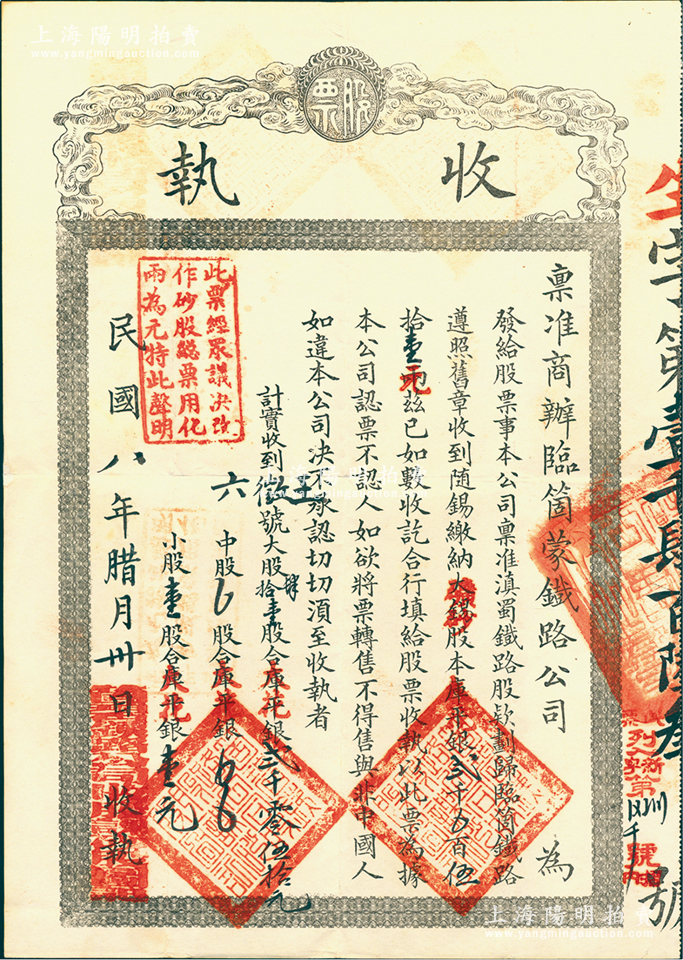 上海陽明拍賣
www.yangmingauction.com
股票
收執
稟准商辦臨箇蒙鐵路公司 為
發給股票事本公司稟准滇蜀鐵路股欵劃歸臨箇鐵路
遵照舊章收到随錫繳納大錫股本庫平銀貳千 百伍
拾壹元兹已如數收訖合行填給股票收執以此票為據
本公司認票不認人如欲將票轉售不得售與非中國人
如違本公司决不承認切切湏至收執者
計實收到 號大股拾壹股合庫平銀貳千零伍拾元
六中股 股合庫平銀
小股壹股合庫平銀壹元
民國八年腊月卅日收執
此票經眾議决改
作砂股總票用化
兩為元特此聲明
字第壹千肆百陸 號
上海陽明拍賣
www.yangmingauction.com
上海陽明拍賣
www.yangmingauction.com